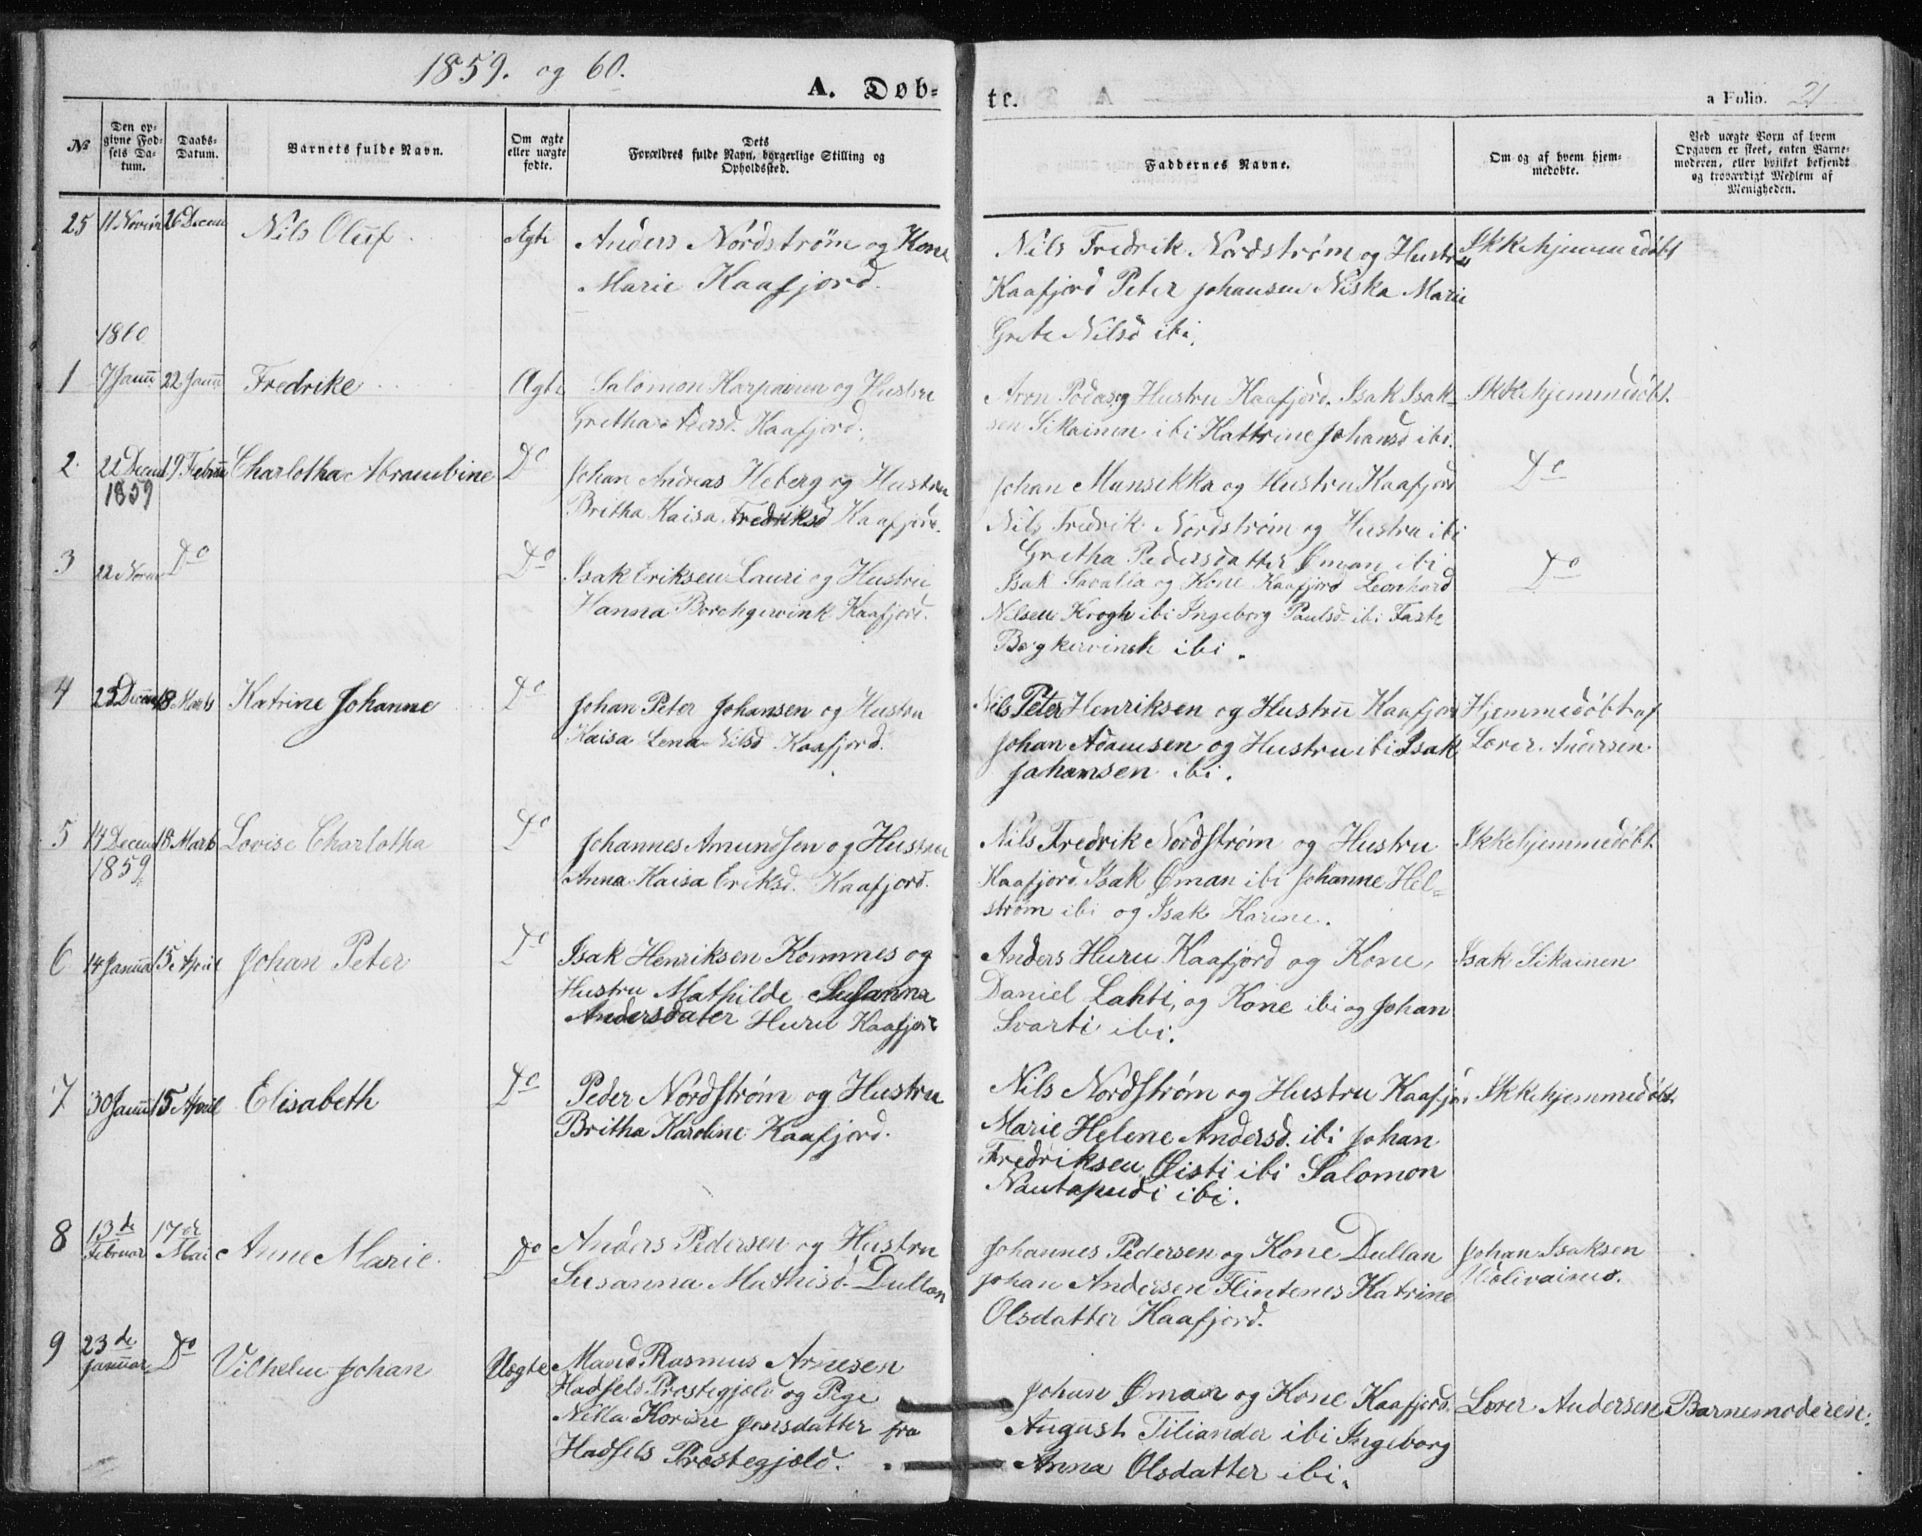 1859. og 60.
A. Døb-
te.
a Folio. 21
No
Den op-
givne Fød-
sels Da-
tum.
Daabs-
Datum.
Barnets fulde Navn.
Om ægte
eller uægte
fødte.
Dets
Forældres fulde Navn, borgerlige Stilling og
Opholdssted.
Faddernes Navne.
Om og af hvem hjem-
medøbte.
Ved uægte Børn af hvem
Opgaven er skeet, enten Barne-
moderen, eller hvilket bekjendt
og troværdigt Medlem af
Menigheden.
25 11 Novem 26 Decem Nils Oluf Ægte
Anders Nordstrøm og Kone
Marie Kaafjord.
Nils Fredrik Nordstrøm og Hustru
Kaafjord Peter Johansen Niska Marie
Grete Nilsd ibi.
Ikke hjemmedøbt
1860
1 7 Janu 22 Janu Fredrike Ægte
Salomon Karpainen og Hustru
Gretha Adersd. Kaafjord.
Aron Podas og Hustru Kaafjord. Isak Isak-
sen Sikainen ibi Kattrine Johansd ibi.
Ikke hjemmedøbt.
2. 22 Decem 19 Febru Charlotha Abrambine Do
1859
Johan Andreas Heberg og Hustru
Britha Kaisa Fredriksd Kaafjord.
Johan Munsikka og Hustru Kaafjord
Nils Fredrik Nordstrøm og Hustru ibi
Gretha Pedersdatter Øman ibi
Do
3 22 Novem Do Do
Isak Eriksen Lauri og Hustru
Hanna Borchgervink Kaafjord.
Isak Savalia og Kone Kaafjord Leonhard
Nilsen Krogh ibi Ingeborg Paulsd ibi Faste
Bergkervinck ibi.
Do
4 23 Decem 18 Marts Katrine Johanne Do
Johan Peter Johansen og Hustru
Kaisa Lena Nilsd Kaafjord.
Nils Peter Henriksen og Hustru Kaafjor
Johan Adamsen og Hustru ibi Isak
Johansen ibi.
Hjemmedøbt af
Lærer Andersen.
5 14 Decem 18 Marts Lovise Charlotha Do
1859
Johannes Amundsen og Hustru
Anna Kaisa Eriksd. Kaafjord.
Nils Fredrik Nordstrøm og Hustru
Kaafjord Isak Øman ibi Johanne Hel-
strøm ibi og Isak Karine.
Ikke hjemmedøbt.
6 14 Janua 15 April Johan Peter Do
Isak Henriksen Kommes og
Hustru Mathilde Susanna
Andersdater Huru Kaafjord
Anders Huru Kaafjord og Kone,
Daniel Lahti, og Kone ibi og Johan
Svarti ibi.
Isak Sikainen
7 30 Janu 15 April Elisabeth Do
Peder Nordstrøm og Hustru
Britha Karoline Kaafjord.
Nils Nordstrøm og Hustru Kaafjo
Marie Helene Andersd. ibi Johan
Fredriksen Øisti ibi Salomon
Nautapudi ibi.
Ikke hjemmedøbt.
8 13de Februar 17de Mai Anne Marie. Do
Anders Pedersen og Hustru
Susanna Mathisd. Dullan
Johannes Pedersen og Kone Dullan
Johan Andersen Flintenes Katrine
Olsdatter Kaafjord.
Johan Isaksen
9 23de Januar Do Vilhelm Johan Uægte
Mand. Rasmus Arnesen
Hadsels Præstegjeld og Pige
Nilla Korine Jensdatter fra
Hadsels Præstegjeld.
Johan Øman og Kone Kaafjord.
August Tiliander ibi Ingeborg
Anna Olsdatter ibi.
Lærer Andersen
Barnemoderen.